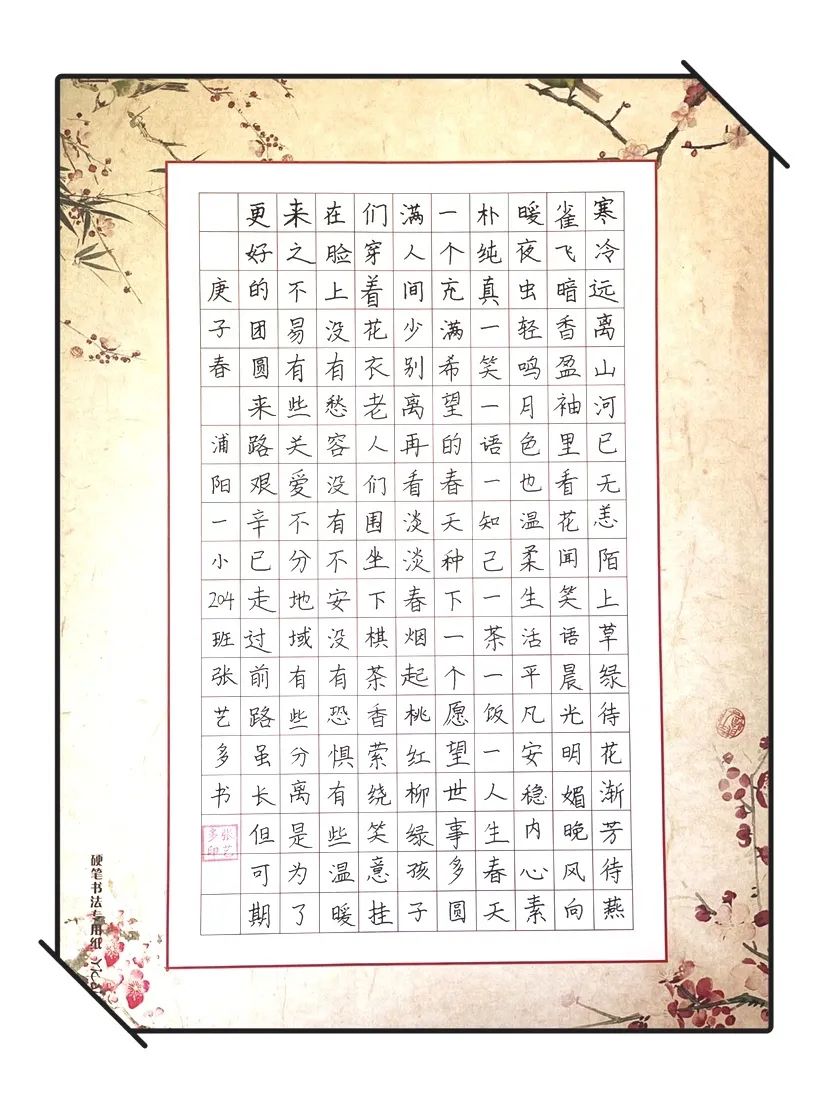 寒冷远离山河已无恙陌上草绿待花渐芳待燕
雀飞暗香盈袖里看花闻笑语晨光明媚晚风向
暖夜虫轻鸣月色也温柔生活平凡安稳内心素
朴纯真一笑一语一知己一茶一饭一人生春天
一个充满希望的春天种下一个愿望世事多圆
满人间少别离再看淡淡春烟起桃红柳绿孩子
们穿着花衣老人们围坐下棋茶香萦绕笑意挂
在脸上没有愁容没有不安没有恐惧有些温暖
来之不易有些关爱不分地域有些分离是为了
更好的团圆来路艰辛已走过前路虽长但可期
庚子春 浦阳一小204班张艺多书
张艺多印
硬笔书法专用纸